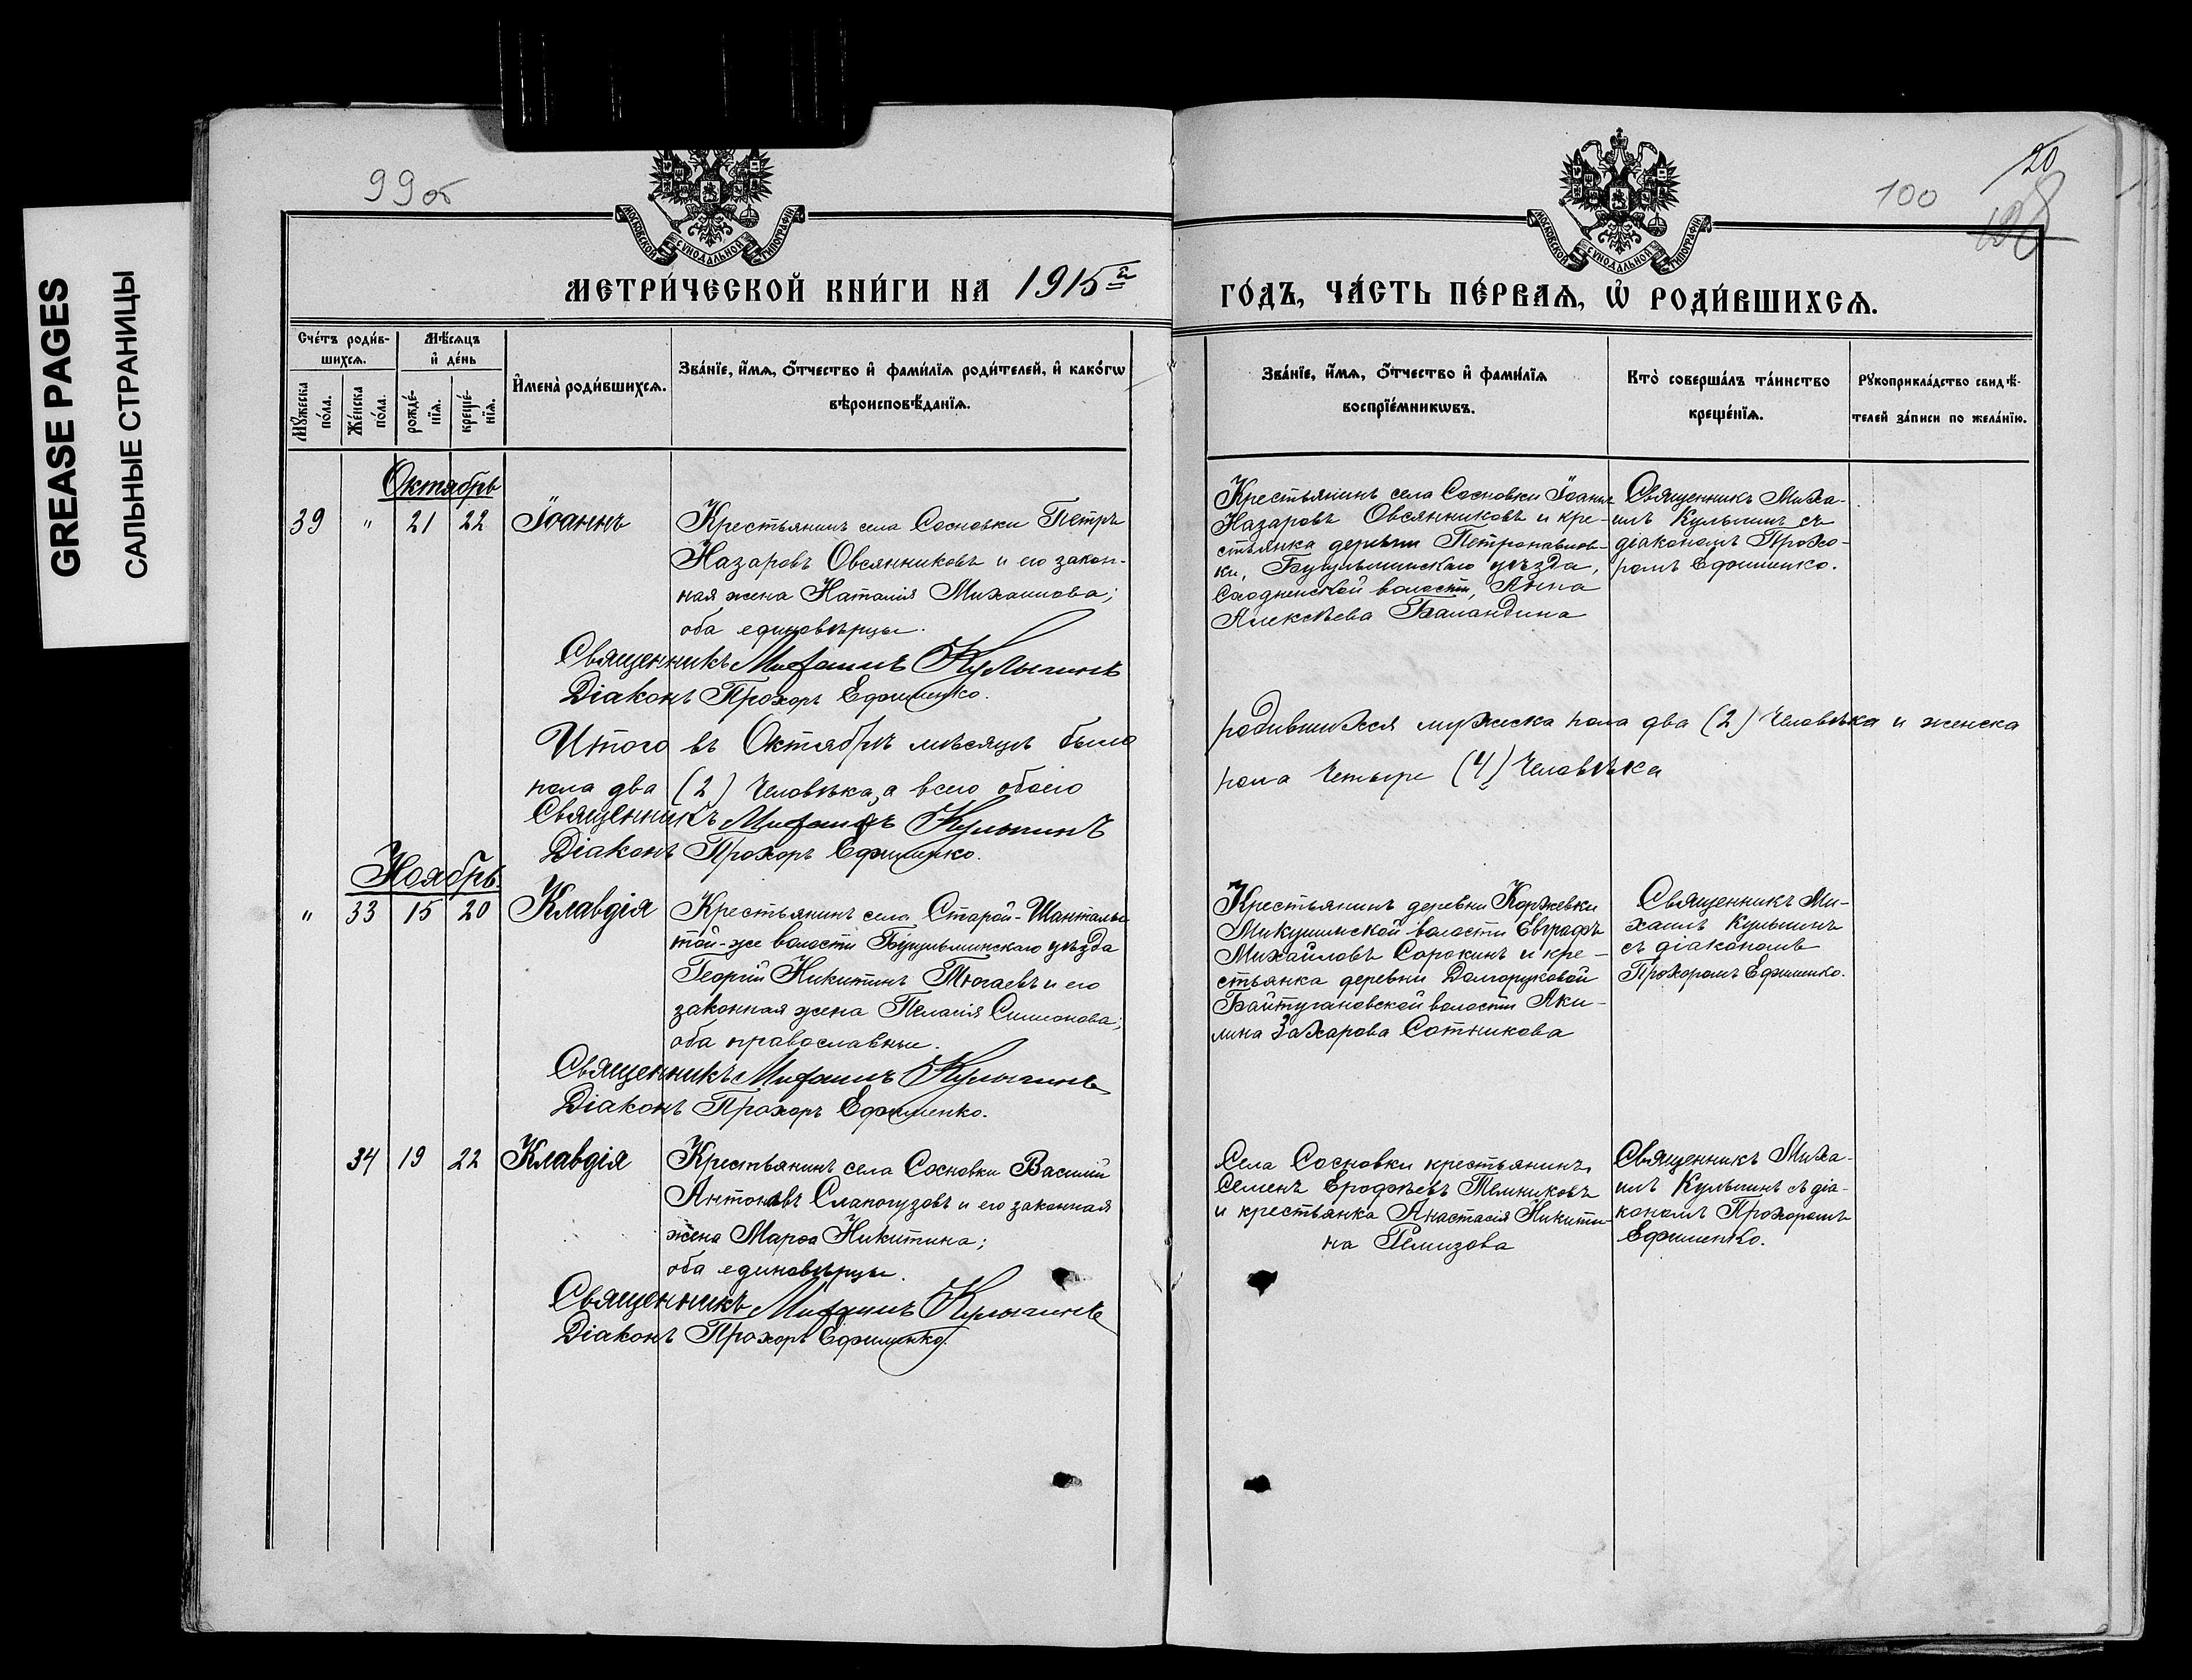 GREASE PAGES
САЛЬНЫЕ СТРАНИЦЫ
99об
МОСКОВСКОЙ СѴНОДАЛЬНОЙ ТИПОГРАФІИ
МЕТРИ́ЧЕСКОЙ КНИ́ГИ НА 1915й
Сче́тъ роди́в-
шихсѧ.
Мѣ́сѧцъ
и҆ де́нь
Мꙋ́жеска
по́ла.
Же́нска
по́ла.
рожде́-
нїѧ.
креще́-
нїѧ.
И҆мена̀ роди́вшихсѧ.
Зва́нїе, и҆́мѧ, ѻ҆́тчество и҆ фами́лїѧ роди́телей, и҆ како́гѡ
вѣроисповѣ́данїѧ.
Октябрь
39 " 21 22 Іоаннъ
Крестьянинъ села Сосновки Петръ
Назаровъ Овсянниковъ и его закон-
ная жена Наталія Михаилова;
оба единовѣрцы.
Священникъ Михаилъ Кулыгинъ
Діаконъ Прохоръ Ефименко.
Итого въ Октябрѣ мѣсяцѣ было
пола два (2) человѣка, а всего обоего
Священникъ Михаилъ Кулыгинъ
Діаконъ Прохоръ Ефименко.
Ноябрь.
" 33 15 20 Клавдія
Крестьянинъ села Старой-Шанталы
той-же волости Бугульминскаго уѣзда
Георгій Никитинъ Тюгаевъ и его
законная жена Пелагія Симеонова;
оба православные.
Священникъ Михаилъ Кулыгинъ
Діаконъ Прохоръ Ефименко.
34 19 22 Клавдія
Крестьянинъ села Сосновки Василій
Антоновъ Слапогузовъ и его законная
жена Марѳа Никитина;
оба единовѣрцы.
Священникъ Михаилъ Кулыгинъ
Діаконъ Прохоръ Ефименко.
100
20
МОСКОВСКОЙ СѴНОДАЛЬНОЙ ТИПОГРАФІИ
ГО́ДЪ, ЧА́СТЬ ПЕ́РВАѦ, Ѡ҆ РОДИ́ВШИХСѦ.
Зва́нїе, и҆́мѧ, ѻ҆́тчество и҆ фами́лїѧ
воспрїе́мникѡвъ.
Кто̀ соверша́лъ та́инство
креще́нїѧ.
Рꙋкоприкла́дство свидѣ́-
телей за́писи по жела́нїю.
Крестьянинъ села Сосновки Іоаннъ
Назаровъ Овсянниковъ и кре-
стьянка деревни Петропавлов-
ки, Бугульминскаго уѣзда,
волости, Анна
Алексѣева Баландина
Священникъ Миха-
илъ Кулыгинъ съ
діакономъ Прохо-
ромъ Ефименко.
родившихся мужеска пола два (2) человѣка и женска
пола четыре (4) человѣка
Крестьянинъ деревни Коржевки
Микушинской волости Евграфъ
Михайловъ Сорокинъ и кре-
стьянка деревни Долгоруковой
Байтугановской волости Аки-
лина Захарова Сотникова
Священникъ Ми-
хаилъ Кулыгинъ
съ діакономъ
Прохоромъ Ефименко.
Села Сосновки крестьянинъ
Семенъ Ерофѣевъ Темниковъ
и крестьянка Анастасія Никити-
на Ремизова
Священникъ Миха-
илъ Кулыгинъ съ діа-
кономъ Прохоромъ
Ефименко.